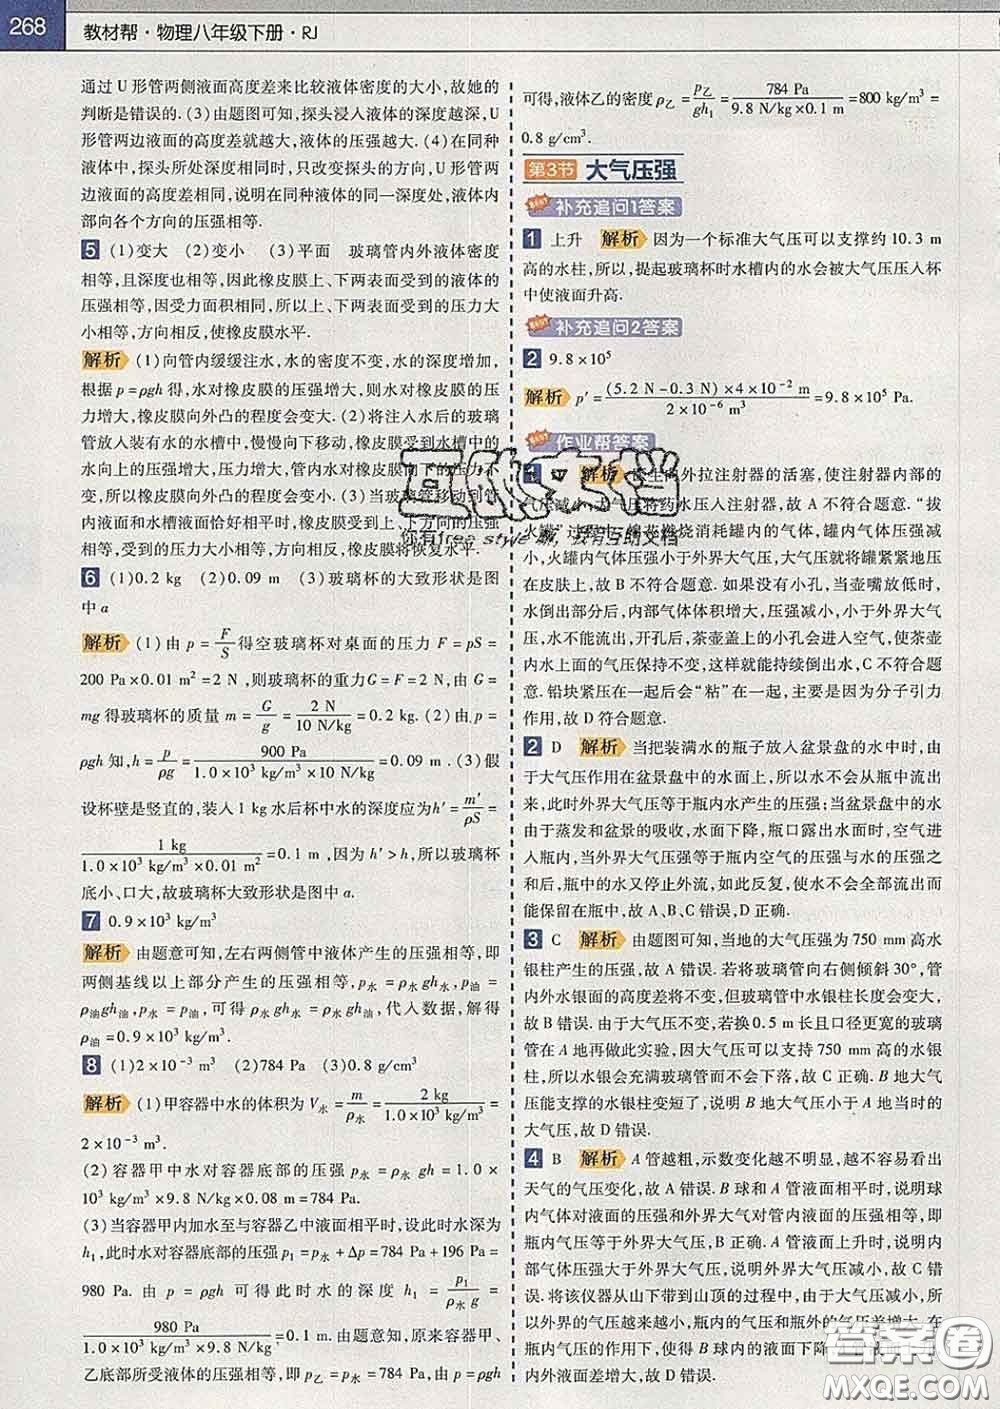 268
教材帮·物理八年级下册·RJ
通过 U 形管两侧液面高度差来比较液体密度的大小,故她的
判断是错误的. (3)由题图可知,探头浸入液体的深度越深,U
形管两边液面的高度差就越大,液体的压强越大. (4)在同种
液体中,探头所处深度相同时,只改变探头的方向,U 形管两
边液面的高度差相同,说明在同种液体的同一深度处,液体内
部向各个方向的压强相等.
5 (1)变大 (2)变小 (3)平面 玻璃管内外液体密度
相等,且深度也相等,因此橡皮膜上、下两表面受到的液体的
压强相等,因受力面积相同,所以上、下两表面受到的压力大
小相等,方向相反,使橡皮膜水平.
解析 (1)向管内缓缓注水,水的密度不变,水的深度增加,
根据 p=ρgh 得,水对橡皮膜的压强增大,则水对橡皮膜的压
力增大,橡皮膜向外凸的程度会变大. (2)将注入水后的玻璃
管放入装有水的水槽中,慢慢向下移动,橡皮膜受到水槽中的
水向上的压强增大,压力增大,管内水对橡皮膜向下的压力不
变,橡皮膜向外凸的程度会变小. (3)当玻璃管移动到管
内液面和水槽液面恰好相平时,橡皮膜受到上、下方向的压强
相等,压力相等,橡皮膜将恢复水平.
6 (1)0.2 kg (2)0.09 m (3)玻璃杯的大致形状是图
中 a
解析 (1)由 p=F/S 得空玻璃杯对桌面的压力 F=pS=
200 Pa×0.01 m²=2 N,则玻璃杯的重力 G=F=2 N,由 G=
mg 得玻璃杯的质量 m=G/g=2 N/10 N/kg=0.2 kg. (2)由 p=
ρgh 知,h=p/ρg=900 Pa/1.0×10³ kg/m³×10 N/kg=0.09 m. (3)假
设杯壁是竖直的,装入 1 kg 水后杯中水的深度应为 h′=m′/ρS=
1 kg/1.0×10³ kg/m³×0.01 m²=0.1 m,因为 h′>h,所以玻璃杯
底小、口大,故玻璃杯大致形状是图中 a.
7 0.9×10³ kg/m³
解析 由题意可知,左右两侧管中液体产生的压强相等,即
两侧基线以上部分产生的压强相等,p水=ρ水gh水,p油=
ρ油gh油,p水=p油,可得 ρ水gh水=ρ油gh油,代入数据,解得
ρ油=0.9×10³ kg/m³.
8 (1)2×10⁻³ m³ (2)784 Pa (3)0.8
解析 (1)甲容器中水的体积为 V水=m/ρ水=2 kg/1.0×10³ kg/m³=
2×10⁻³ m³.
(2)容器甲中水对容器底部的压强 p水=ρ水gh=1.0×
10³ kg/m³×9.8 N/kg×0.08 m=784 Pa.
(3)当容器甲内加水至与容器乙中液面相平时,设此时水深为
h₁,此时水对容器底部的压强 p₁=p水+Δp=784 Pa+196 Pa=
980 Pa. 由 p=ρgh 可得此时水的深度 h₁=p₁/ρ水g=
980 Pa/1.0×10³ kg/m³×9.8 N/kg=0.1 m. 由题意知,原来容器甲、
乙底部所受液体的压强相等,即 p乙=p水=784 Pa,由 p=ρgh
可得,液体乙的密度 ρ乙=p乙/gh₁=784 Pa/9.8 N/kg×0.1 m=800 kg/m³=
0.8 g/cm³.
第3节 大气压强
补充追问1答案
1 上升 解析 因为一个标准大气压可以支撑约 10.3 m
高的水柱,所以,提起玻璃杯时水槽内的水会被大气压压入杯
中使液面升高.
补充追问2答案
2 9.8×10⁵
解析 p′=(5.2 N-0.3 N)×4×10⁻² m/2×10⁻⁶ m³=9.8×10⁵ Pa.
作业帮答案
解析 向外拉注射器的活塞,使注射器内部的
气压减小,大气压将药水压入注射器,故 A 不符合题意. “拔
火罐”过程中,棉花燃烧消耗罐内的气体,罐内气体压强减
小,火罐内气体压强小于外界大气压,大气压就将罐紧紧地压
在皮肤上,故 B 不符合题意. 如果没有小孔,当壶嘴放低时,
水倒出部分后,内部气体体积增大,压强减小,小于外界大气
压,水不能流出,开孔后,茶壶盖上的小孔会进入空气,使茶壶
内水上方的气压保持不变,壶内的水就能持续流出,C 不符合题
意. 铅块紧压在一起后会“粘”在一起,主要是因为分子引力
作用,故 D 符合题意.
2 D 解析 当把装满水的瓶子放入盆景盘的水中时,由
于大气压作用在盆景盘中的水面上,所以水不能从瓶中流出
来,此时外界大气压等于瓶内水产生的压强;当盆景盘中的水
由于蒸发和盆景的吸收,水面下降,瓶口露出水面时,空气进
入瓶内,当外界大气压强等于瓶内空气的压强与水的压强之
和后,瓶中的水又停止外流,如此反复,使水不会立即全部流
出而全部留在瓶中,故 A、B、C 错误,D 正确.
3 C 解析 由题图可知,当地的大气压强为 750 mm 高水
银柱产生的压强,故 A 错误. 若将玻璃管向右侧倾斜 30°,管
内外水银面的高度差将不变,但玻璃管中水银柱长度会变大,
故 B 错误. 由于大气压不变,若换 0.5 m 长且口径更宽的玻璃
管在 A 地再做此实验,因大气压可以支持 750 mm 高的水银
柱,所以水银会充满玻璃管而不会下落,故 C 正确. B 地大气
压能支撑的水银柱变短了,说明 B 地大气压小于 A 地当时的
大气压,故 D 错误.
4 B 解析 A 管越粗,示数变化越不明显,越不容易看出
天气的气压变化,故 A 错误. B 球和 A 管液面相平时,说明球
内气体对液面的压强和外界大气对管内液面的压强相等,即
瓶内气压等于外界大气压,故 B 正确. A 管液面上升时,说明内
部气体压强大于外界大气压,说明此时外界大气压减小,故 C
错误. 将该仪器从山下带到山顶的过程中,由于大气压越高的
所以外界的气压越来越小,瓶内的气压和瓶外的气压差增大,在
瓶内气压的作用下,使得 B 球内的液面下降
内外液面差增大,故 D 错误.
你有free style嘛,我有互助文档
答案圈
MXQE.COM